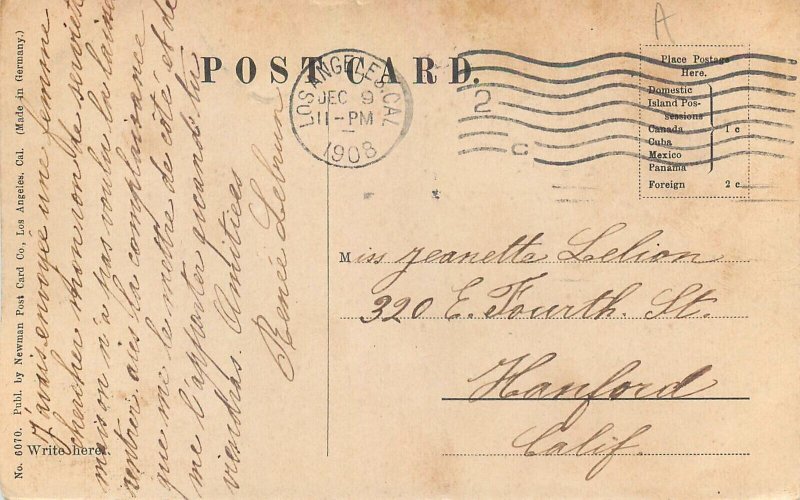 POST CARD.
No. 6070. Publ. by Newman Post Card Co., Los Angeles, Cal. (Made in Germany.)
Write here.
J'avais envoyée une femme
chercher mon ton
maison n'a pas voulu la laine
la complaisance
que me la mettre de côté et de
me l'apporter quand tu
viendras. Amitiées
Renée Lebrun
LOS ANGELES, CAL.
DEC 9
11-PM
1908
2
C
A
Place Postage
Here.
Domestic
Island Pos-
sessions
Canada 1 c
Cuba
Mexico
Panama
Foreign 2 c.
Miss Jeanette Lelion
320 E. Fourth. St.
Hanford
Calif.